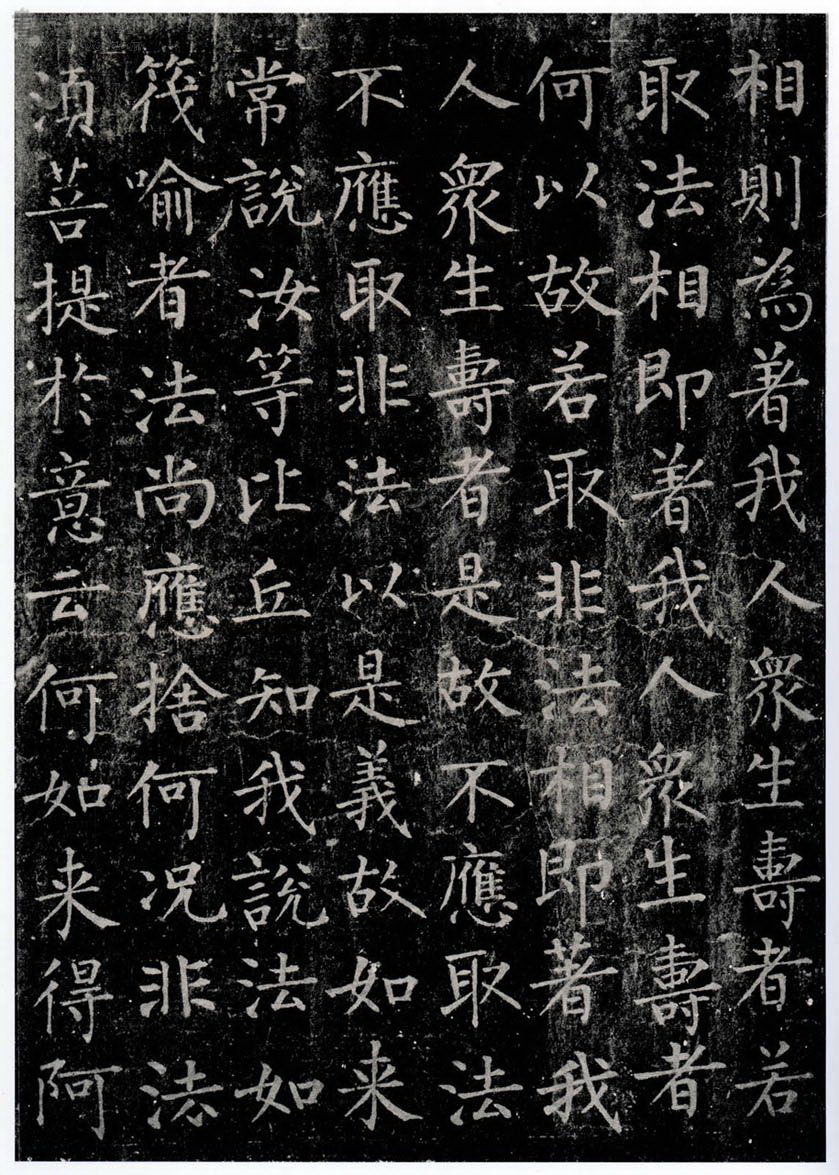 相則為著我人衆生壽者若
取法相即著我人衆生壽者
何以故若取非法相即著我
人衆生壽者是故不應取法
不應取非法以是義故如来
常説汝等比丘知我説法如
筏喻者法尚應捨何况非法
湏菩提於意云何如来得阿